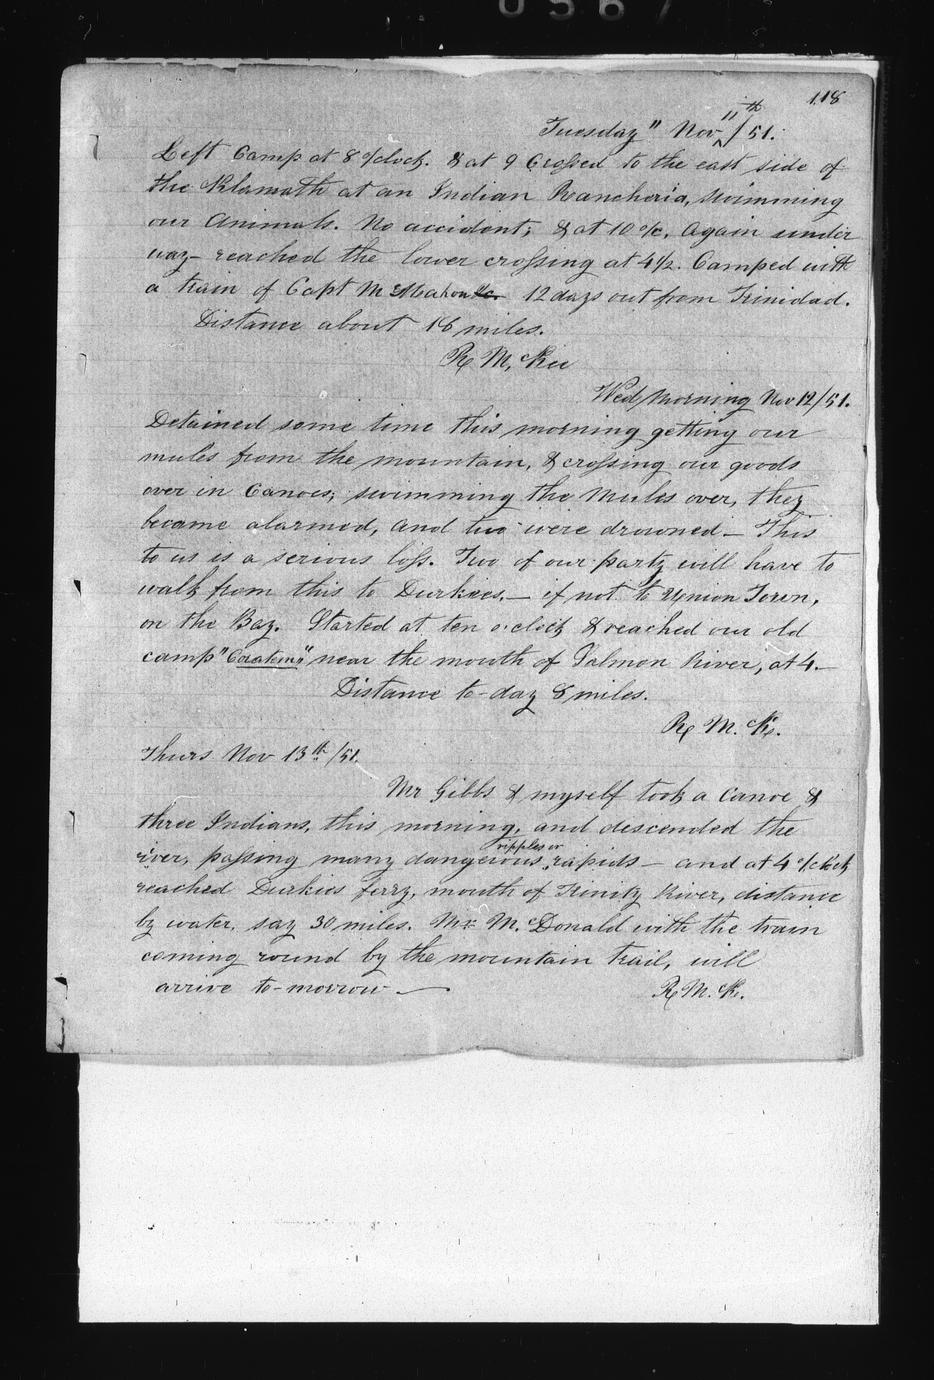 0567
118
Tuesday " Nov 11th / 51.
Left Camp at 8 o/clock. & at 9 Crossed to the east side of
the Klamath at an Indian Rancheria, swimming
our Animals. No accident; & at 10 o/c. Again under
way - reached the lower crossing at 4½. Camped with
a train of Capt McMahon 12 days out from Trinidad.
Distance about 18 miles.
R McKee
Wed, Morning Nov 12/51.
Detained some time this morning getting our
mules from the mountain, & crossing our goods
over in Canoes; swimming the Mules over, they
became alarmed, and two were drowned - This
to us is a serious loss. Two of our party will have to
walk from this to Durkees, - if not to Union Town,
on the Bay. Started at ten o'clock & reached our old
camp "Coratem" near the mouth of Salmon River, at 4. -
Distance to-day 8 miles.
R McK.
Thurs Nov 13th /51.
Mr Gibbs & myself took a Canoe &
three Indians, this morning, and descended the
river, passing many dangerous ripples or rapids - and at 4 o/clock
reached Durkies ferry, mouth of Trinity River, distance
by water, say 30 miles. Mr McDonald with the train
coming round by the mountain trail, will
arrive to-morrow -
R McK.